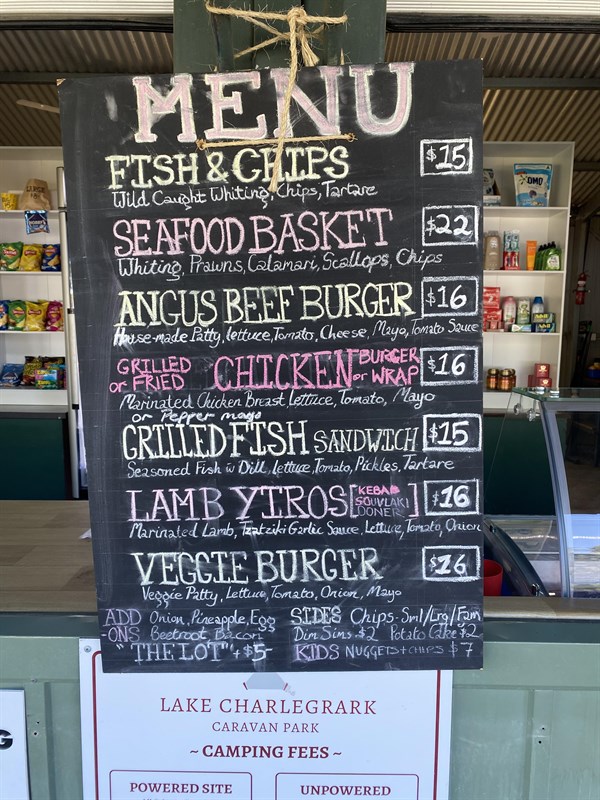 MENU
FISH & CHIPS $15
Wild Caught Whiting, Chips, Tartare
SEAFOOD BASKET $22
Whiting, Prawns, Calamari, Scallops, Chips
ANGUS BEEF BURGER $16
House-made Patty, lettuce, Tomato, Cheese, Mayo, Tomato Sauce
GRILLED or FRIED CHICKEN BURGER or WRAP $16
Marinated Chicken Breast, Lettuce, Tomato, Mayo
or Pepper mayo
GRILLED FISH SANDWICH $15
Seasoned Fish w Dill, lettuce, Tomato, Pickles, Tartare
LAMB YIROS [KEBAB SOUVLAKI DONER] $16
Marinated Lamb, Tzatziki Garlic Sauce, Lettuce, Tomato, Onion
VEGGIE BURGER $16
Veggie Patty, Lettuce, Tomato, Onion, Mayo
ADD -ONS Onion, Pineapple, Egg
Beetroot, Bacon
"THE LOT" + $5-
SIDES Chips - Sml/Lrg/Fam
Dim Sims $2 Potato Cake $2
KIDS NUGGETS + CHIPS $7
LAKE CHARLEGRARK
CARAVAN PARK
~ CAMPING FEES ~
POWERED SITE
UNPOWERED
OMO
G